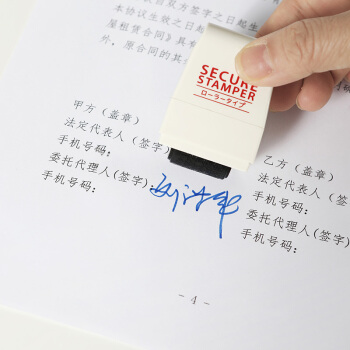 本协议生效之日起生
屋租赁合同》具有
外，原合同的其
SECURE
STAMPER
ローラータイプ
甲方（盖章）
法定代表人（签字）
手机号码：
委托代理人（签字）：
手机号码：
乙方（盖章）
法定代表人（
手机号码：
委托代理人（签
手机号码：
- 4 -